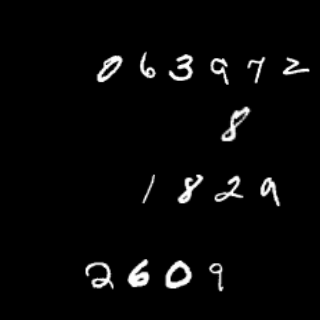 063972
8
1829
2609